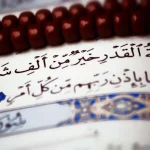 ـةُ الْقَدْرِ خَيْرٌ مِّنْ أَلْفِ شَـ
ـا بِإِذْنِ رَبِّهِم مِّن كُلِّ أَمْرٍ